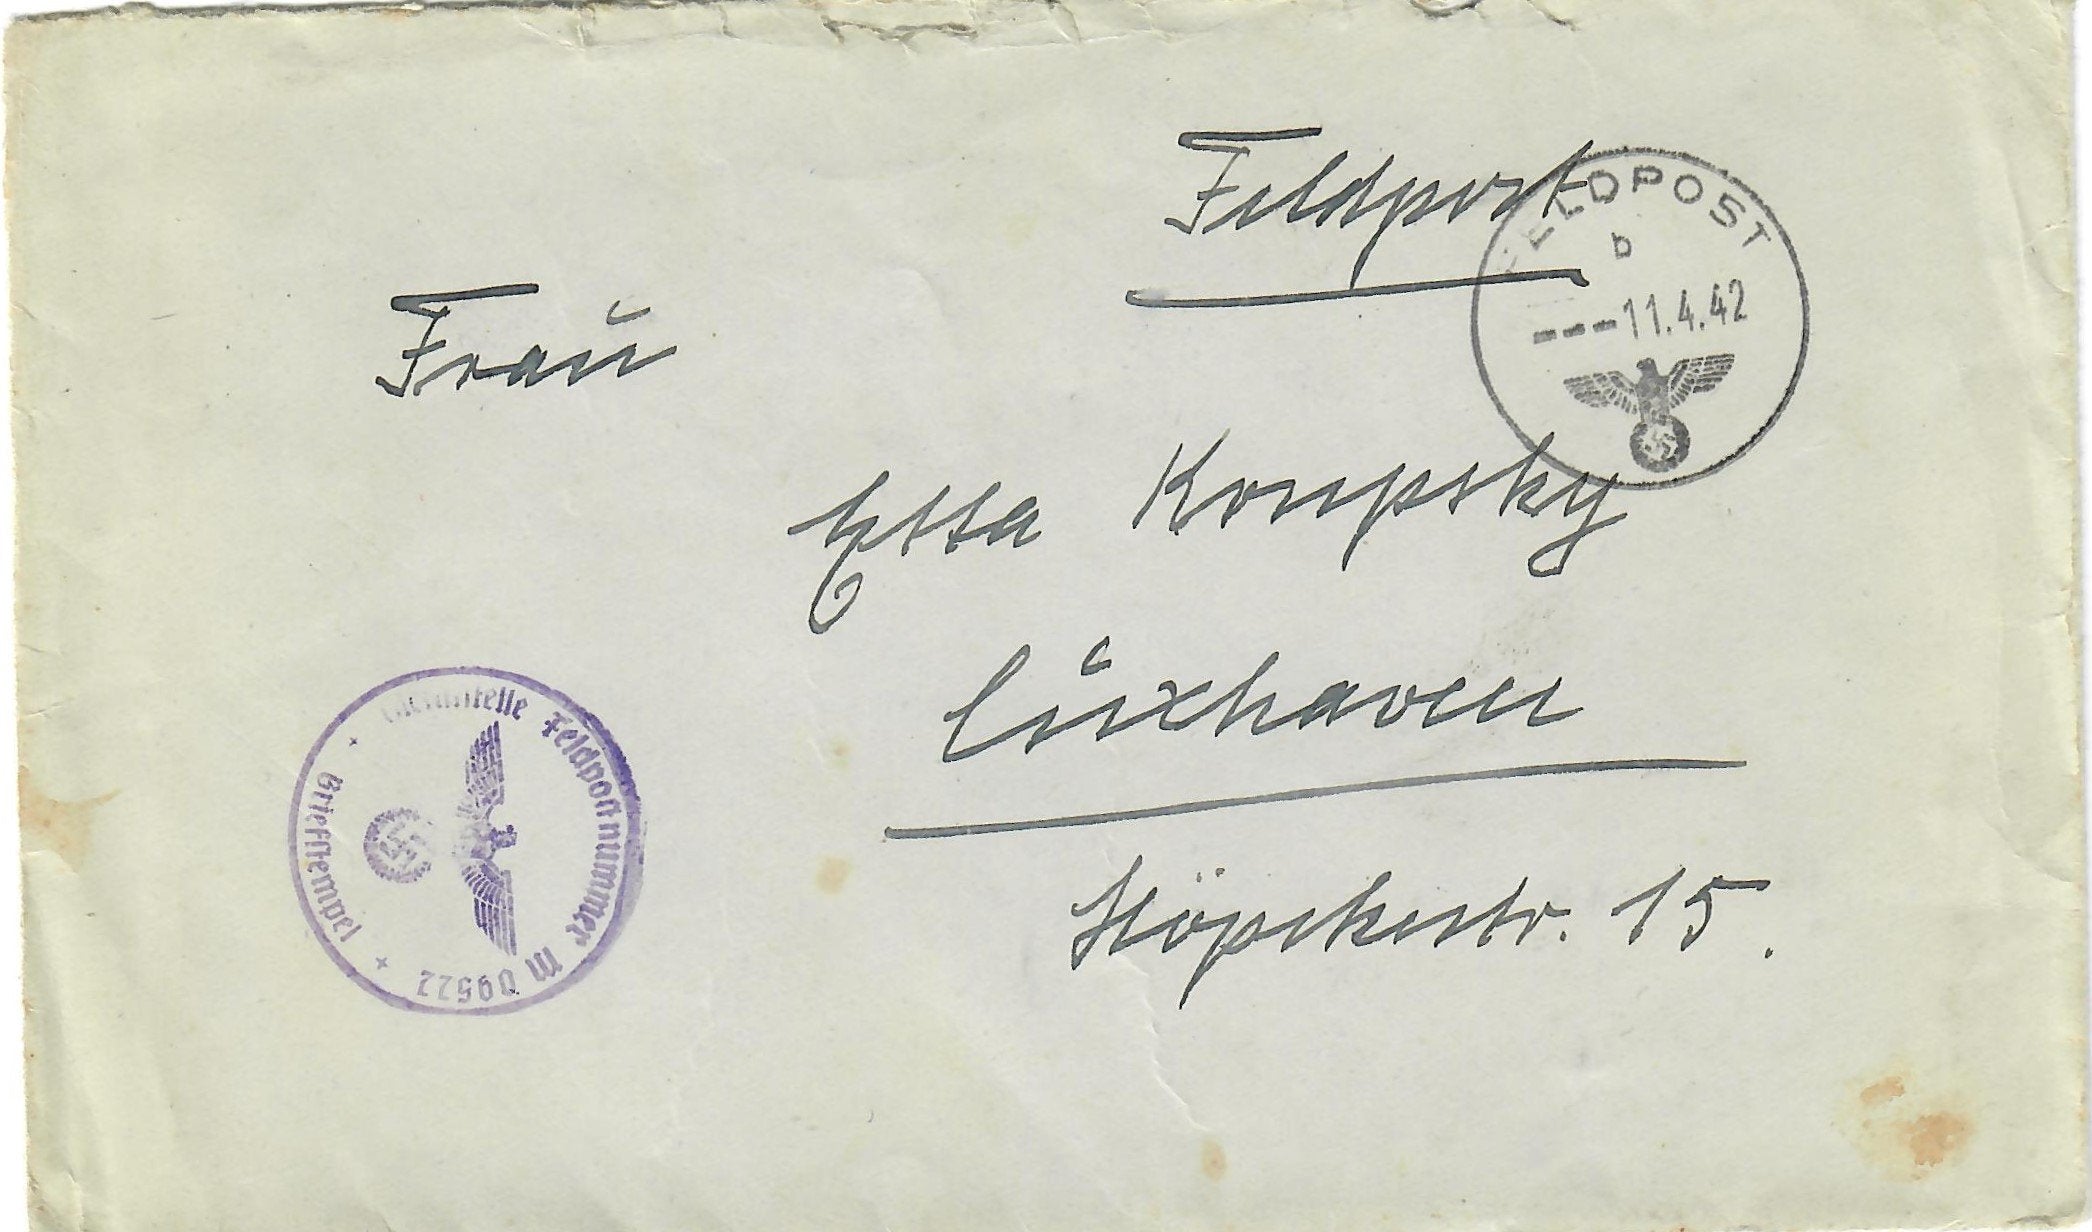 Feldpost
FELDPOST
b
---11.4.42
Frau
Etta Konupsky
Cuxhaven
Höpckestr. 15.
Dienststelle Feldpostnummer M 09522
+ Briefstempel +